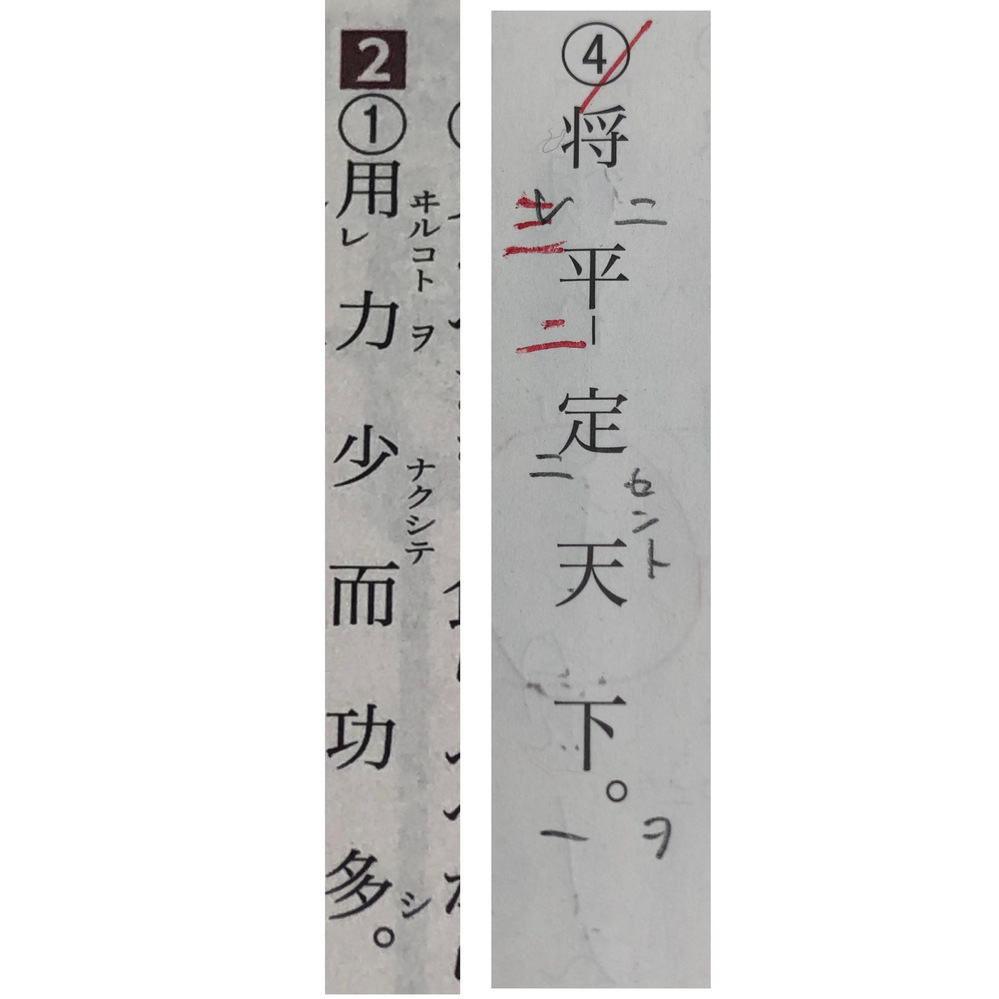 2
①用ヰルコトレ力ヲ少ナクシテ而功多シ。
④将ニ三平二-定二セント天下一ヲ。